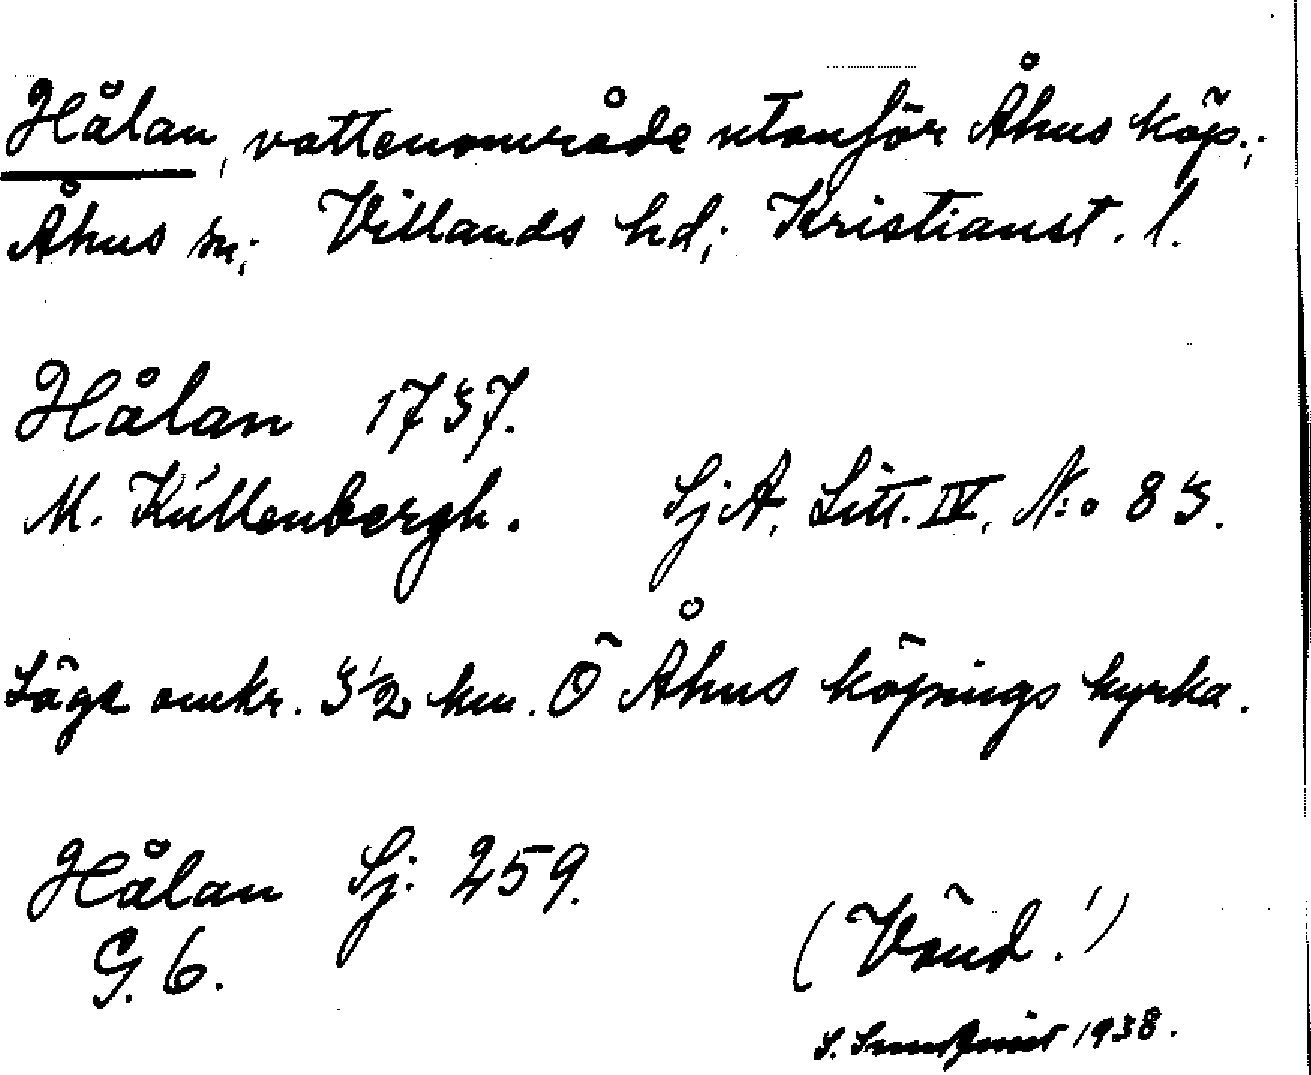 Hålan, vattenområde utanför Åhus köp.;
Åhus sn; Villands hd; Kristianst. l.
Hålan 1757.
M. Kullenbergh. SjA. Litt. IV, N:o 85.
Läge omkr. 3 1/2 km. Ö Åhus köpings kyrka.
Hålan Sj. 259.
G. 6.
(Vänd!)
S. 1938.